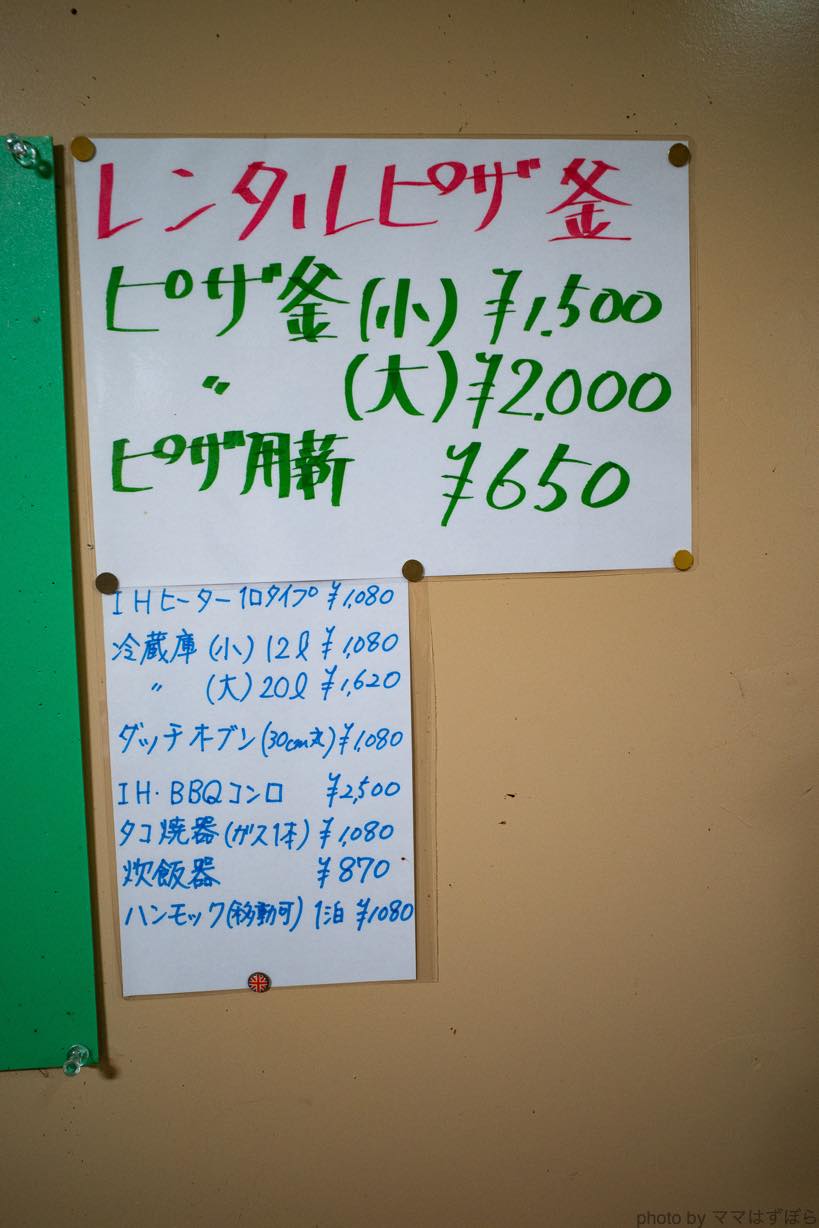 レンタルピザ釜
ピザ釜(小) ¥1,500
〃 (大) ¥2.000
ピザ用薪 ¥650
IHヒーター1口タイプ ¥1,080
冷蔵庫 (小) 12ℓ ¥1,080
〃 (大) 20ℓ ¥1,620
ダッチオーブン(30cm丸) ¥1,080
IH・BBQコンロ ¥2,500
タコ焼器(ガス1本) ¥1,080
炊飯器 ¥870
ハンモック(移動可) 1泊 ¥1080
photo by ママはずぼら